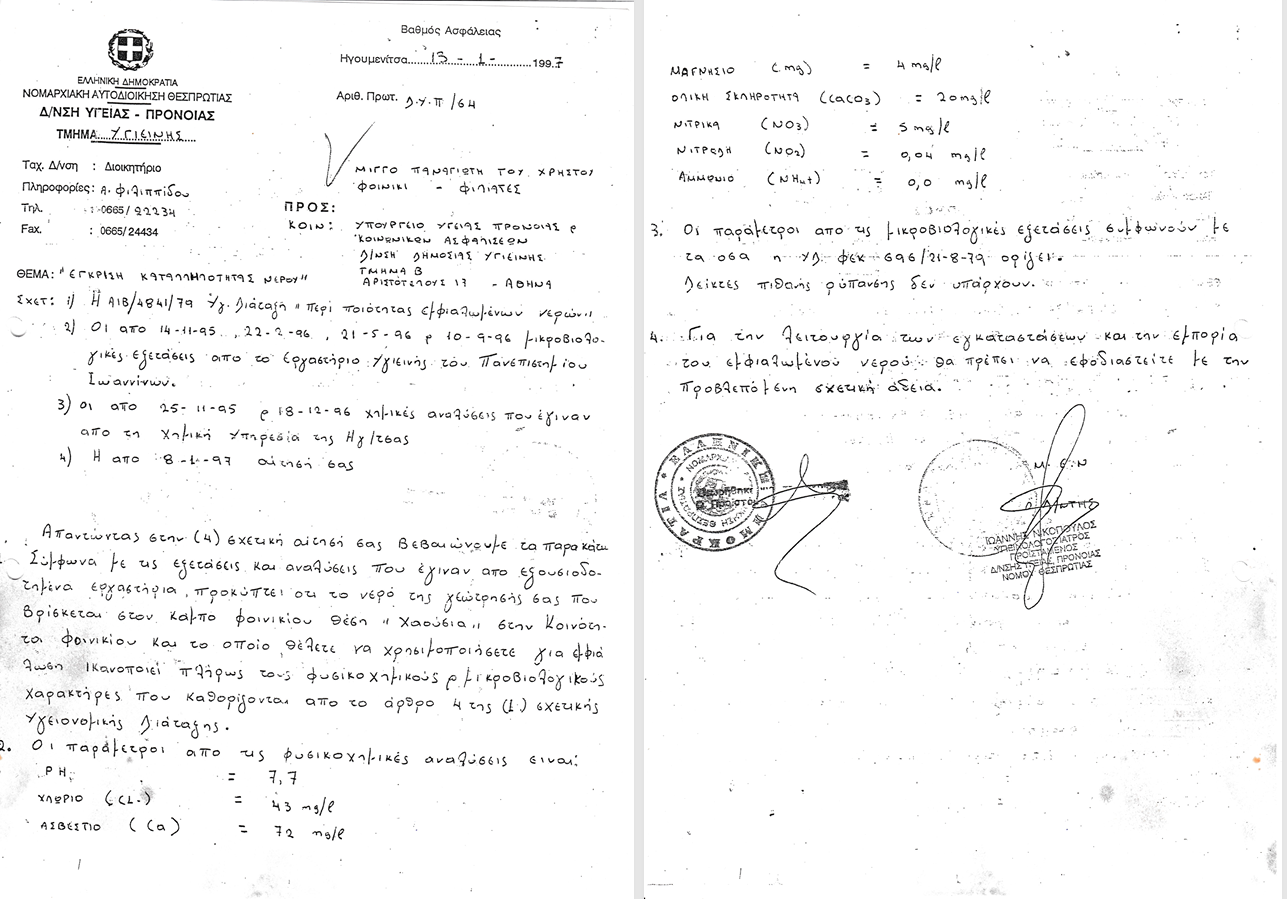 Βαθμός Ασφάλειας
Ηγουμενίτσα......13 - 1 - ...........1997
ΕΛΛΗΝΙΚΗ ΔΗΜΟΚΡΑΤΙΑ
ΝΟΜΑΡΧΙΑΚΗ ΑΥΤΟΔΙΟΙΚΗΣΗ ΘΕΣΠΡΩΤΙΑΣ
Δ/ΝΣΗ ΥΓΕΙΑΣ - ΠΡΟΝΟΙΑΣ
ΤΜΗΜΑ.....ΥΓΙΕΙΝΗΣ
Αριθ. Πρωτ. Δ.Υ.Π /64
Ταχ. Δ/νση : Διοικητήριο
Πληροφορίες: Α. Φιλιππίδου
Τηλ. : 0665/ 22234
Fax. : 0665/ 24434
ΜΙΓΓΟ ΠΑΝΑΓΙΩΤΗ ΤΟΥ ΧΡΗΣΤΟΥ
ΦΟΙΝΙΚΙ - ΦΙΛΙΑΤΕΣ
ΠΡΟΣ:
ΚΟΙΝ: ΥΠΟΥΡΓΕΙΟ ΥΓΕΙΑΣ ΠΡΟΝΟΙΑΣ ρ
ΚΟΙΝΩΝΙΚΩΝ ΑΣΦΑΛΙΣΕΩΝ
Δ/ΝΣΗ ΔΗΜΟΣΙΑΣ ΥΓΙΕΙΝΗΣ
ΤΜΗΜΑ Β
ΑΡΙΣΤΟΤΕΛΟΥΣ 17 - ΑΘΗΝΑ
ΘΕΜΑ: "ΕΓΚΡΙΣΗ ΚΑΤΑΛΛΗΛΟΤΗΤΑΣ ΝΕΡΟΥ"
Σχετ: 1) Η ΑΙΒ/4841/79 Υγ. Διάταξη "περί ποιότητας εμφιαλωμένων νερών"
2) Οι απο 14-11-95, 22-2-96, 21-5-96 ρ 10-9-96 μικροβιολο-
γικές εξετάσεις απο το Εργαστήριο Υγιεινής του Πανεπιστημίου
Ιωαννίνων.
3) Οι απο 25-11-95 ρ 18-12-96 χημικές αναλύσεις που έγιναν
απο τη Χημική Υπηρεσία της Ηγ/τσας
4) Η απο 8-1-97 αίτησή σας
Απαντώντας στην (4) σχετική αίτησή σας βεβαιώνουμε τα παρακάτω
Σύμφωνα με τις εξετάσεις και αναλύσεις που έγιναν απο εξουσιοδο-
τημένα εργαστήρια, προκύπτει οτι το νερό της γεώτρησής σας που
βρίσκεται στον κάμπο φοινικίου θέση "Χαούσια" στην Κοινότη-
τα φοινικίου και το οποίο θέλετε να χρησιμοποιήσετε για εμφιά
λωση ικανοποιεί πλήρως τους φυσικοχημικούς ρ μικροβιολογικούς
χαρακτήρες που καθορίζονται απο το άρθρο 4 της (1) σχετικής
Υγειονομικής Διάταξης.
2. Οι παράμετροι απο τις φυσικοχημικές αναλύσεις είναι:
PH = 7,7
ΧΛΩΡΙΟ (CL-) = 43 mg/l
ΑΣΒΕΣΤΙΟ (Ca) = 72 mg/l
ΜΑΓΝΗΣΙΟ (mg) = 4 mg/l
ΟΛΙΚΗ ΣΚΛΗΡΟΤΗΤΑ (CaCO3) = 20 mg/l
ΝΙΤΡΙΚΑ (NO3) = 5 mg/l
ΝΙΤΡΩΔΗ (NO2) = 0,04 mg/l
ΑΜΜΩΝΙΟ (NH4+) = 0,0 mg/l
3. Οι παράμετροι απο τις μικροβιολογικές εξετάσεις συμφωνούν με
τα οσα η ΥΔ. φεκ 696/21-8-79 ορίζει.
Δείκτες πιθανής ρύπανσης δεν υπάρχουν.
4. Για την λειτουργία των εγκαταστάσεων και την εμπορία
του εμφιαλωμένου νερού θα πρέπει να εφοδιαστείτε με την
προβλεπόμενη σχετική άδεια.
ΕΛΛΗΝΙΚΗ ΔΗΜΟΚΡΑΤΙΑ
Θεωρήθηκε
Μ.Ε.Ν
ΙΩΑΝΝΗΣ ΝΙΚΟΠΟΥΛΟΣ
ΠΡΟΪΣΤΑΜΕΝΟΣ
Δ/ΝΣΗΣ ΥΓΕΙΑΣ ΠΡΟΝΟΙΑΣ
ΝΟΜΟΥ ΘΕΣΠΡΩΤΙΑΣ